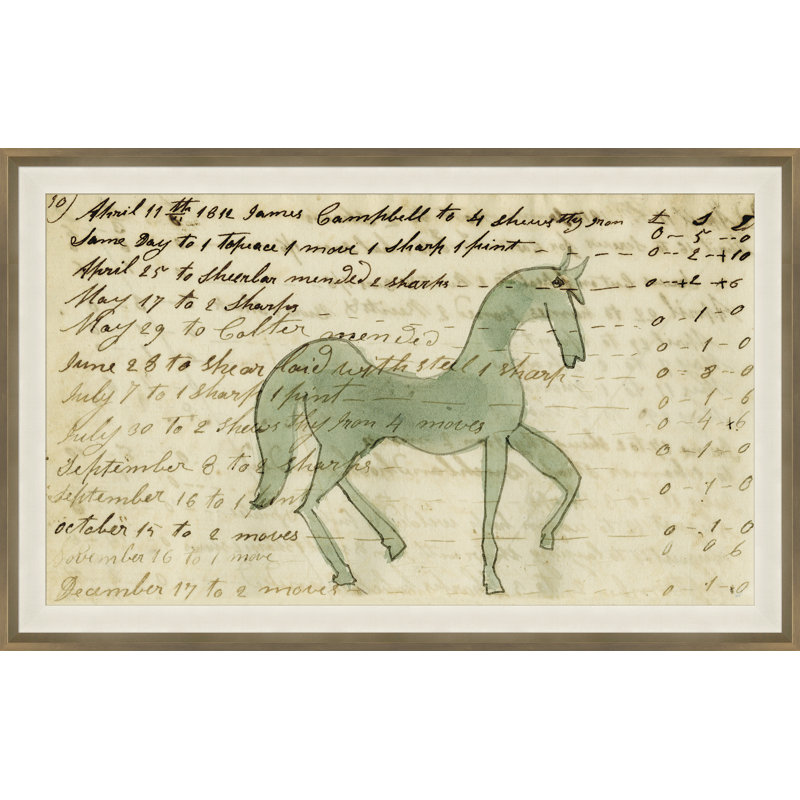 10) April 11th 1812 James Campbell to 4 shews thy Iron £ S D
0 - 5 - - 0
Same Day to 1 topeace 1 move 1 sharp 1 pint - - - 0 - - 2 - + 10
April 25 to Sheerbar mended 2 sharps - - - - 0 - +2 - +6
May 17 to 2 sharps - - - 0 - 1 - 0
May 29 to Colter mended - - - 0 - 1 - 0
June 28 to shear laid with steel 1 sharp - - - 0 - 8 - 0
July 7 to 1 sharp 1 pint - - - 0 - 1 - 6
July 30 to 2 shews thy Iron 4 moves 0 - 4 - +6
September 8 to 2 sharps - - - 0 - 1 - 0
September 16 to 1 pint - - - 0 - 1 - 0
october 15 to 2 moves - - - 0 - 1 - 0
November 16 to 1 move 0 0 6
December 17 to 2 moves - - - 0 - 1 - 0